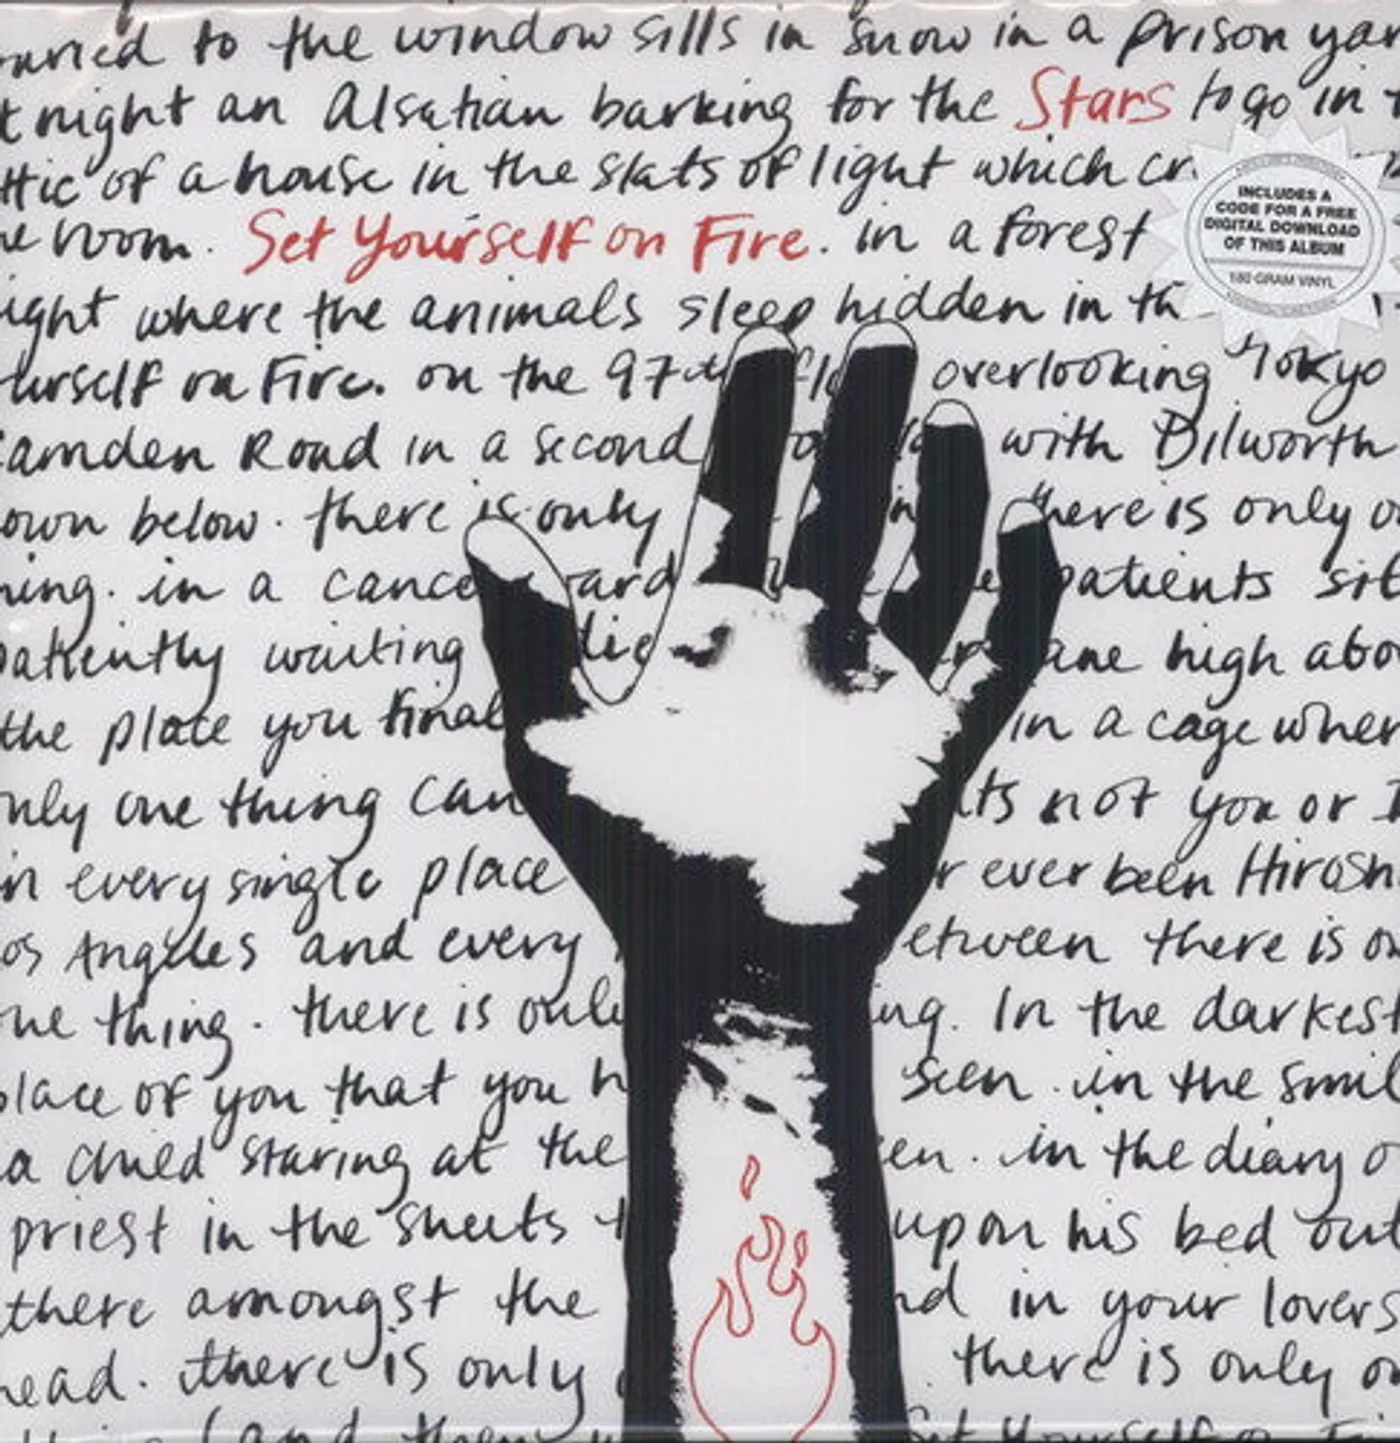 buried to the window sills in snow in a prison yar
t night an Alsatian barking for the Stars to go in t
ttic of a house in the slats of light which cr
he room. Set Yourself on Fire. in a forest
ight where the animals sleep hidden in th
urself on Fire. on the 97th flo overlooking Tokyo
Camden Road in a second with Dilworth
own below. there is only there is only o
hing. in a cance ward patients sit
patiently waiting die ane high abo
the place you final in a cage wher
only one thing can its not you or I
in every single place r ever been Hirosh
os Angeles and every etween there is on
one thing. there is only ing. In the darkest
place of you that you h seen. in the smil
a child staring at the en. in the diary o
priest in the sheets t upon his bed out
there amongst the nd in your lovers
head. there is only o there is only on
thing (and then w Set Yourself on Fi
INCLUDES A
CODE FOR A FREE
DIGITAL DOWNLOAD
OF THIS ALBUM
180 GRAM VINYL